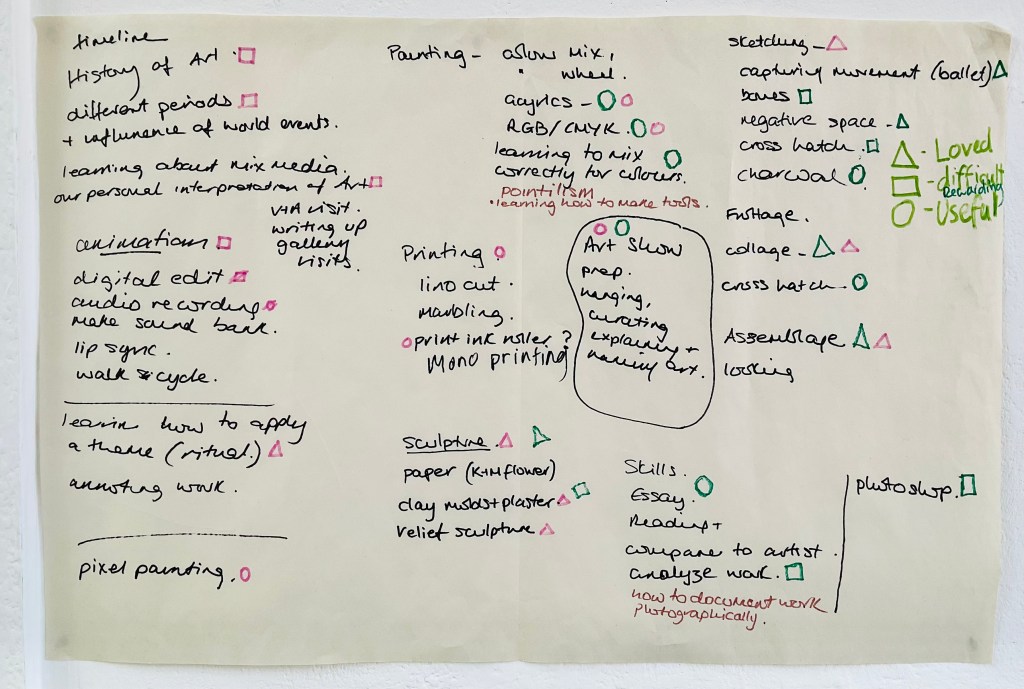 timeline
History of Art
different periods
+ influnence of world events.
learning about mix media.
our personal interpretation of Art
V+A visit.
writing up
gallery
visits.
animation
digital edit
audio recording
make sound bank.
lip sync.
walk cycle.
learn how to apply
a theme (ritual.)
annoting work.
pixel painting.
Painting - colour mix,
wheel.
acyrics -
RGB/CMYK.
learning to mix
correctly for colours.
pointilism
• learning how to make tools.
Printing
lino cut.
marbling.
print ink roller ?
Mono printing
Art Show
prep.
hanging,
curating
explaining +
naming art.
sculpture.
paper (K+M flower)
clay molds + plaster
relief sculpture
sketching -
capturing movement (ballet)
boxes
negative space -
cross hatch.
charcoal
Frottage.
collage -
cross hatch -
Assemblage
looking
△ - Loved
□ - difficult
Rewarding
○ - Useful
Skills.
Essay.
Reading +
compare to artist.
analyze work.
how to document work
photographically.
photoshop.